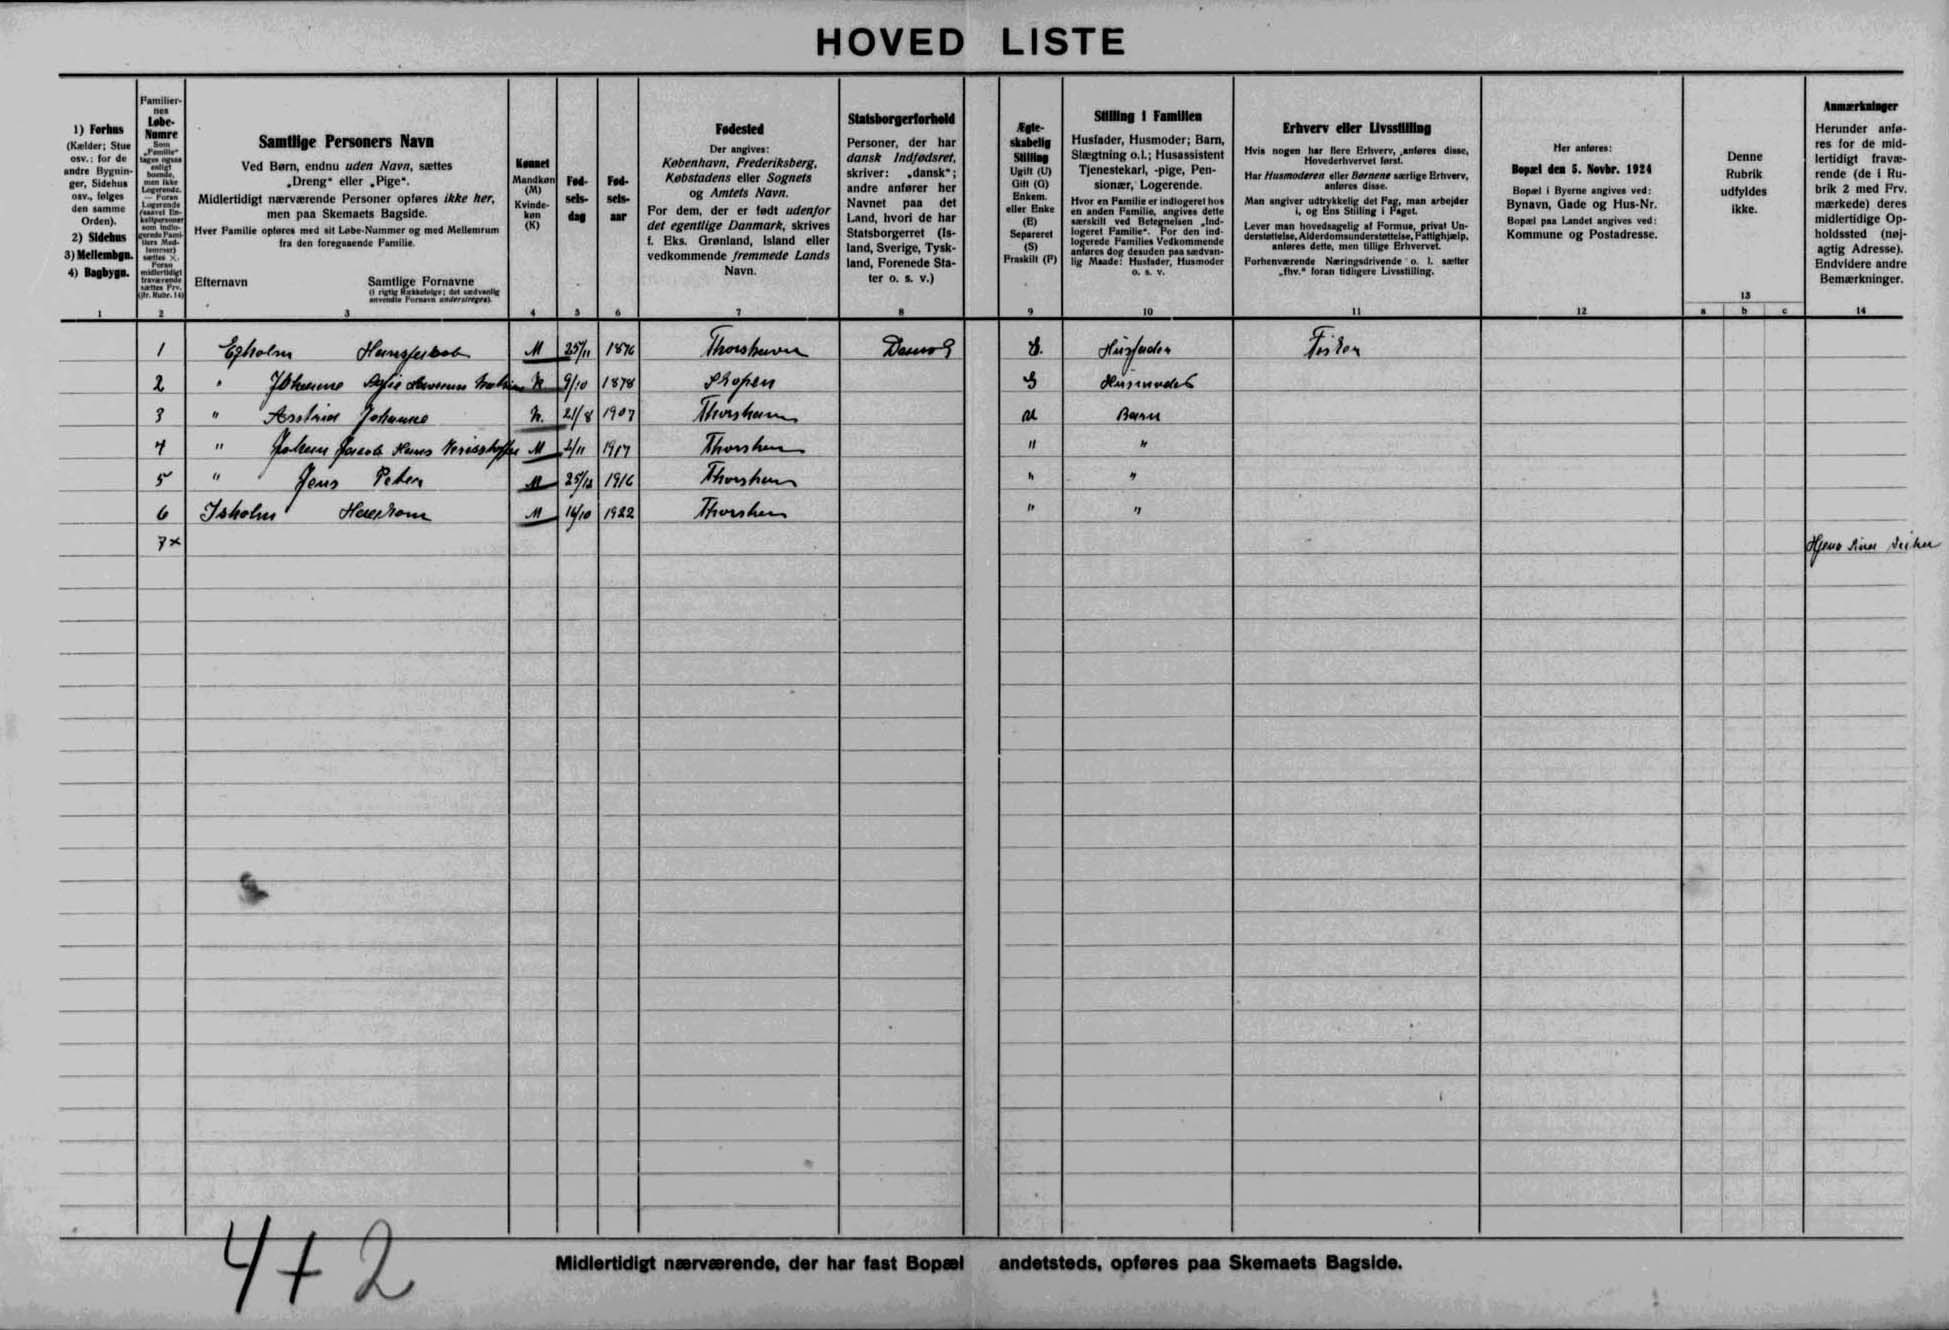 HOVED LISTE
1) Forhus
(Kælder; Stue
osv.: for de
andre Bygnin-
ger, Sidehus
osv., følges
den samme
Orden).
2) Sidehus
3) Mellembgn.
4) Bagbygn.
1
Familier-
nes
Løbe-
Numre
Som
„Familie"
tages ogsaa
enligt
boende,
men ikke
Logerende.
— Foran
Logerende
(saavel En-
keltpersoner
som indlo-
gerede Fami-
liers Med-
lemmer)
sættes ×.
Foran
midlertidigt
fraværende
sættes Frv.
(jfr. Rubr. 14)
2
Samtlige Personers Navn
Ved Børn, endnu uden Navn, sættes
„Dreng" eller „Pige".
Midlertidigt nærværende Personer opføres ikke her,
men paa Skemaets Bagside.
Hver Familie opføres med sit Løbe-Nummer og med Mellemrum
fra den foregaaende Familie.
Efternavn Samtlige Fornavne
(i rigtig Rækkefølge; det sædvanlig
anvendte Fornavn understreges).
3
Kønnet
Mandkøn
(M)
Kvinde-
køn
(K)
4
Fød-
sels-
dag
5
Fød-
sels-
aar
6
Fødested
Der angives:
København, Frederiksberg,
Købstadens eller Sognets
og Amtets Navn.
For dem, der er født udenfor
det egentlige Danmark, skrives
f. Eks. Grønland, Island eller
vedkommende fremmede Lands
Navn.
7
Statsborgerforhold
Personer, der har
dansk Indfødsret,
skriver: „dansk";
andre anfører her
Navnet paa det
Land, hvori de har
Statsborgerret (Is-
land, Sverige, Tysk-
land, Forenede Sta-
ter o. s. v.)
8
Ægte-
skabelig
Stilling
Ugift (U)
Gift (G)
Enkem.
eller Enke
(E)
Separeret
(S)
Fraskilt (F)
9
Stilling i Familien
Husfader, Husmoder; Barn,
Slægtning o.l.; Husassistent
Tjenestekarl, -pige, Pen-
sionær, Logerende.
Hvor en Familie er indlogeret hos
en anden Familie, angives dette
særskilt ved Betegnelsen „Ind-
logeret Familie". For den ind-
logerede Families Vedkommende
anføres dog desuden paa sædvan-
lig Maade: Husfader, Husmoder
o. s. v.
10
Erhverv eller Livsstilling
Hvis nogen har flere Erhverv, anføres disse,
Hovederhvervet først.
Har Husmoderen eller Børnene særlige Erhverv,
anføres disse.
Man angiver udtrykkelig det Fag, man arbejder
i, og Ens Stilling i Faget.
Lever man hovedsagelig af Formue, privat Un-
derstøttelse, Alderdomsunderstøttelse, Fattighjælp,
anføres dette, men tillige Erhvervet.
Forhenværende Næringsdrivende o. l. sætter
„fhv." foran tidligere Livsstilling.
11
Her anføres:
Bopæl den 5. Novbr. 1924
Bopæl i Byerne angives ved:
Bynavn, Gade og Hus-Nr.
Bopæl paa Landet angives ved:
Kommune og Postadresse.
12
Denne
Rubrik
udfyldes
ikke.
13
a b c
Anmærkninger
Herunder anfø-
res for de mid-
lertidigt fravæ-
rende (de i Ru-
brik 2 med Frv.
mærkede) deres
midlertidige Op-
holdssted (nøj-
agtig Adresse).
Endvidere andre
Bemærkninger.
14
1 Egholm Hansjacob M 25/11 1876 Thorshavn G. Husfader Fisker
2 " Johanne K 9/10 1878 Skopen G Husmoder
3 " Astrid Johanne K. 21/8 1907 Thorshavn U Barn
4 " Johan Jacob Hans M 2/11 Thorshavn " "
5 " Jens Peter M 25/12 1916 Thorshavn " "
6 M 14/10 1922 Thorshavn " "
7×
4+2
Midlertidigt nærværende, der har fast Bopæl andetsteds, opføres paa Skemaets Bagside.